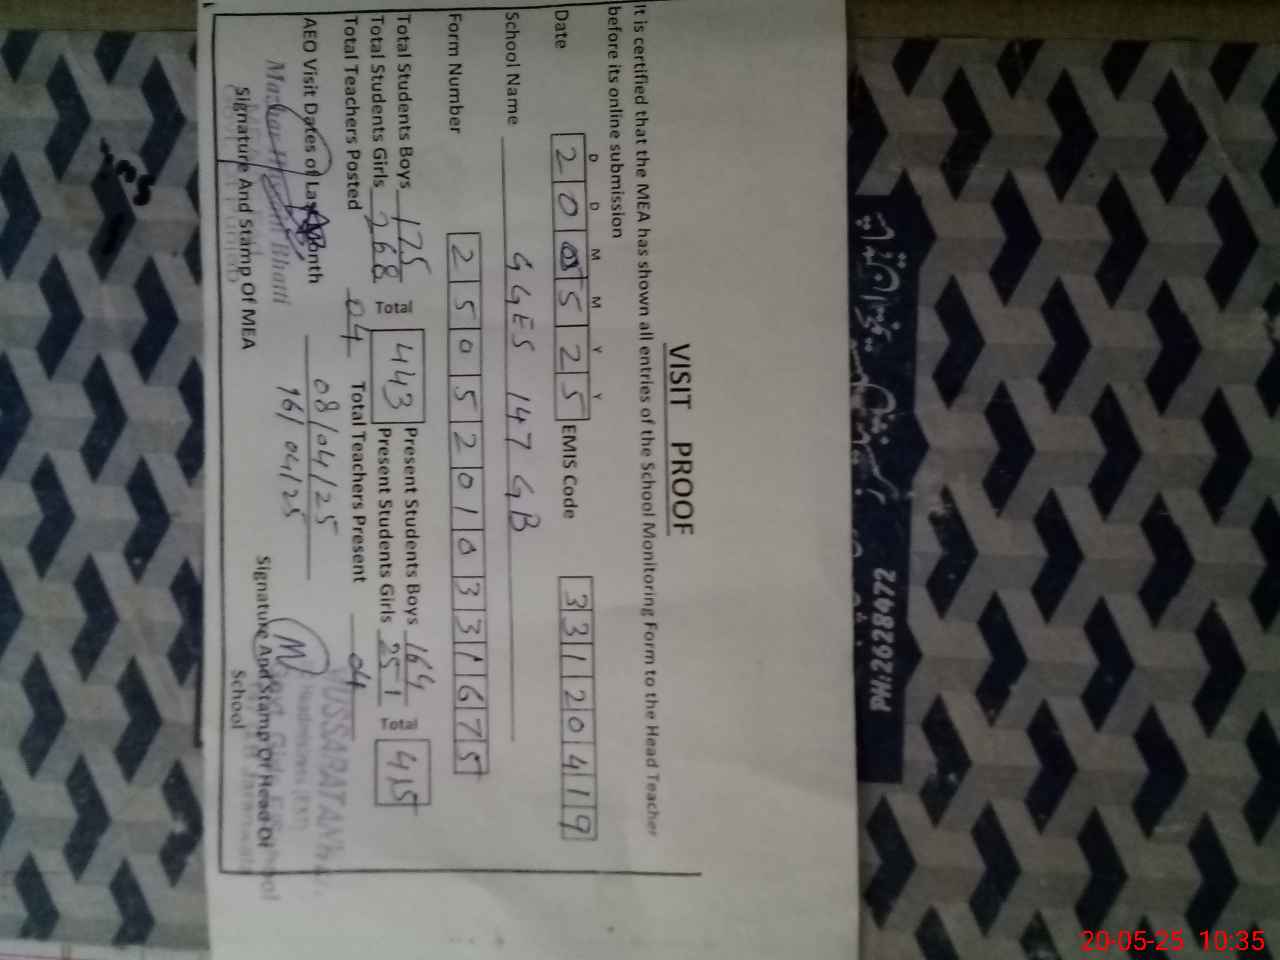 VISIT PROOF
It is certified that the MEA has shown all entries of the School Monitoring Form to the Head Teacher
before its online submission
D D M M Y Y
Date 200525 EMIS Code 33120419
School Name GGES 147 GB
Form Number 25052010331675
Total Students Boys 175 Total 443 Present Students Boys 164 Total 415
Total Students Girls 268 Present Students Girls 251
Total Teachers Posted 04 Total Teachers Present 04
AEO Visit Dates of Last Month 08/04/25
16/04/25
Signature And Stamp Of MEA
Signature And Stamp Of Head Of
School
PH:2628472
20-05-25 10:35